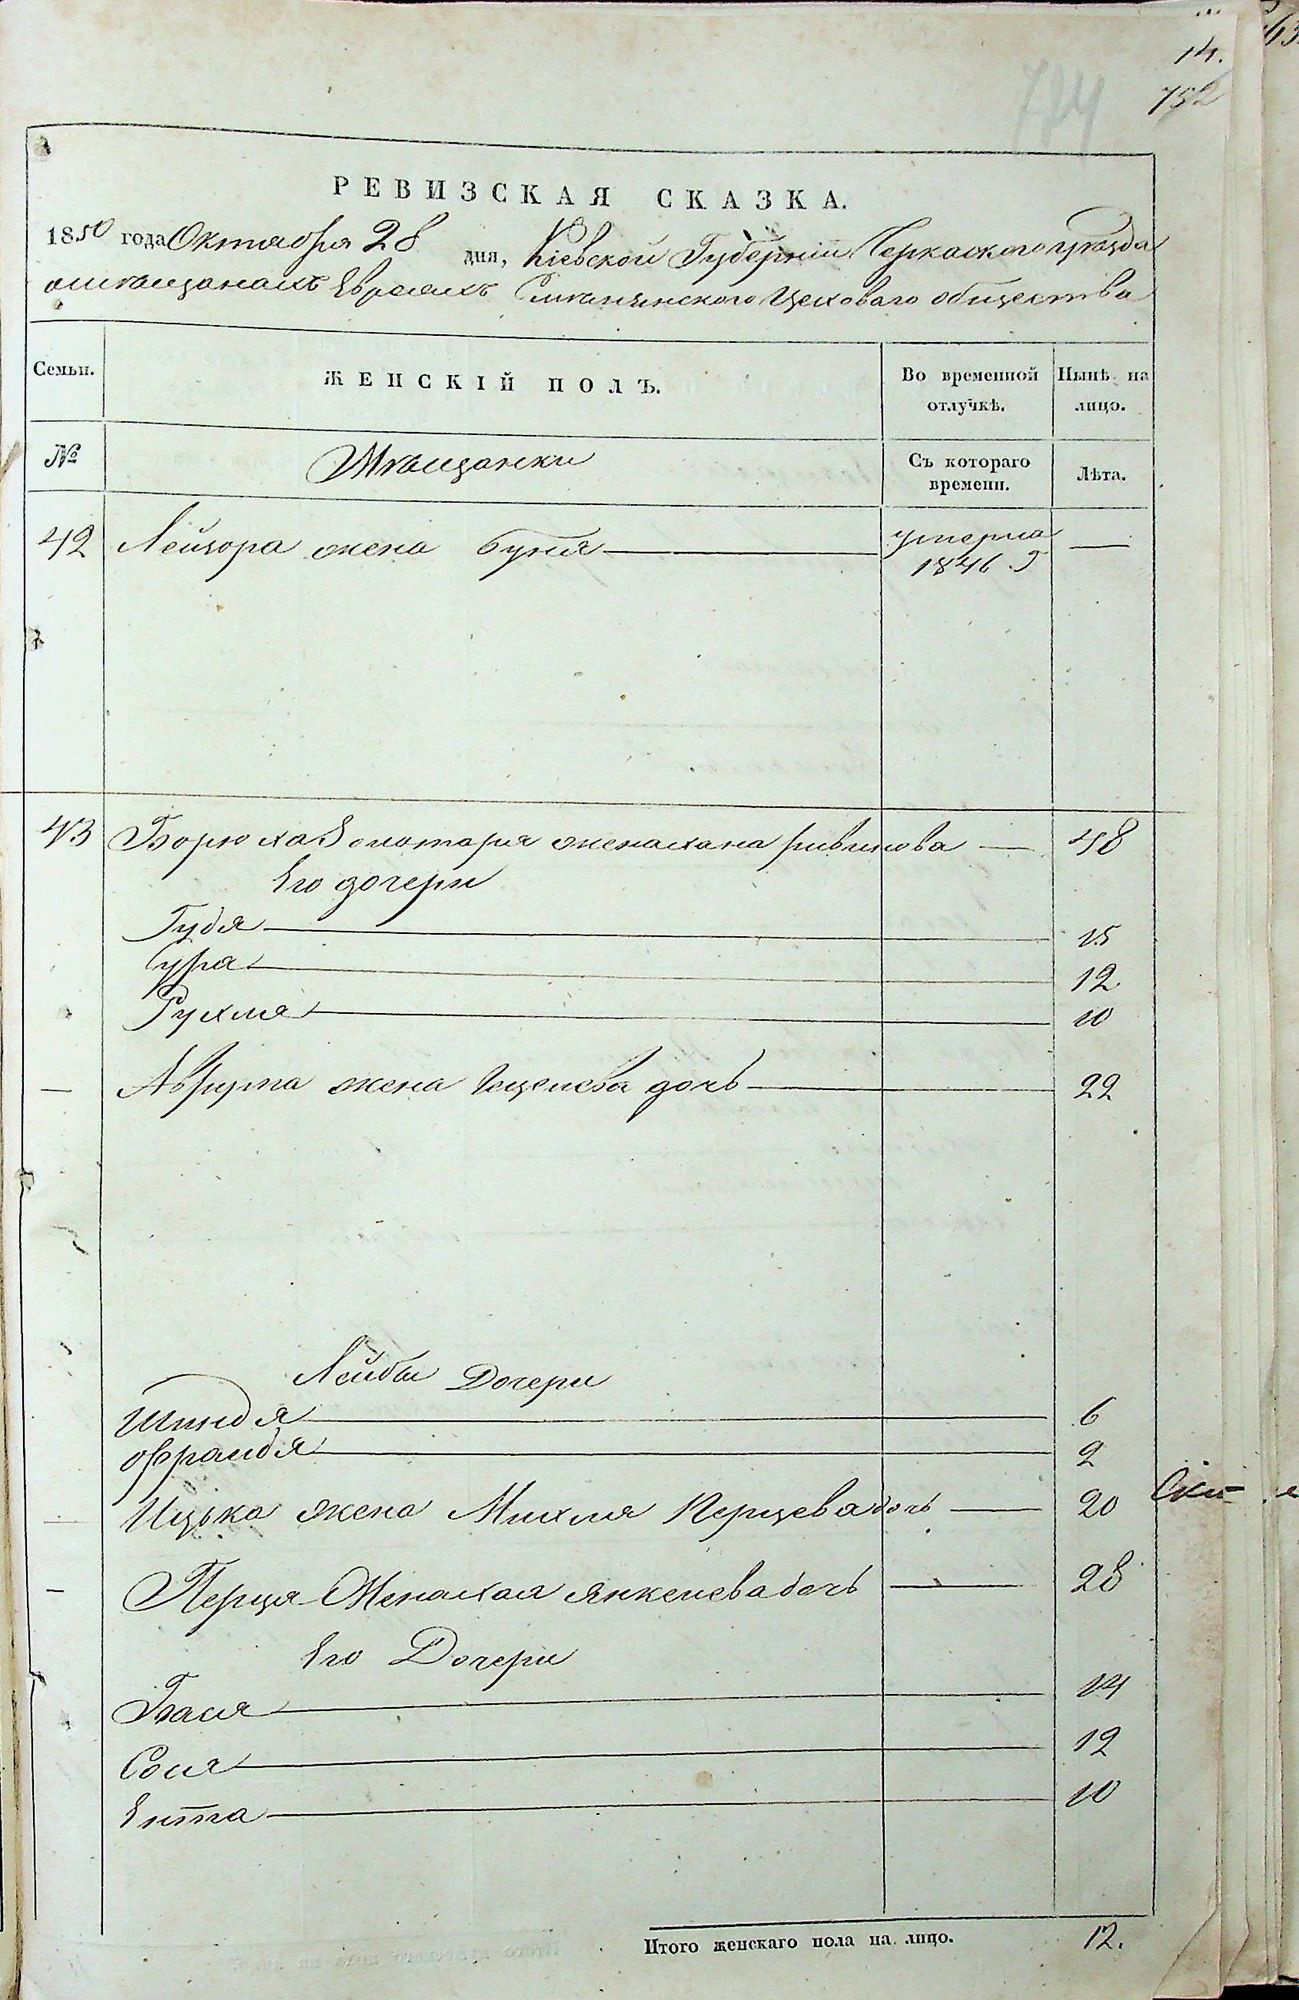 14.
752
724
РЕВИЗСКАЯ СКАЗКА.
1850 года Октября 28 дня, Кіевской Губерніи Черкаского уѣзда
омѣщанахъ Евреяхъ Смѣлянского Цеховаго общества
Семьи. ЖЕНСКІЙ ПОЛЪ. Во временной отлучкѣ. Нынѣ на лицо.
№ Мѣщанки Съ котораго времени. Лѣта.
42 Лейзора жена Буня умерла 1846 г
43 Борюха Золотаря жена хана рывинова 48
Его дочери
Гудя 15
Сура 12
Рухля 10
Аврума жена дочь 22
Лейбы Дочери
Шиндя 6
Офраидя 2
Ицька жена Михля Перцева дочь 20
Перця Жена хая янкелева дочь 28
Его Дочери
Бася 14
Сося 12
Ента 10
Итого женскаго пола на лицо. 12.